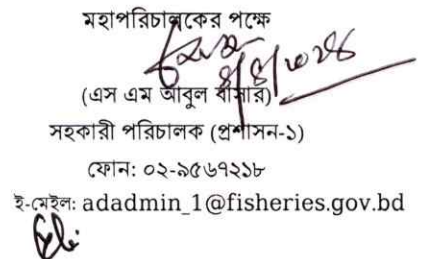 মহাপরিচালকের পক্ষে
(এস এম আবুল বাসার)
সহকারী পরিচালক (প্রশাসন-১)
ফোন: ০২-৯৫৬৭২১৮
ই-মেইল: adadmin_1@fisheries.gov.bd